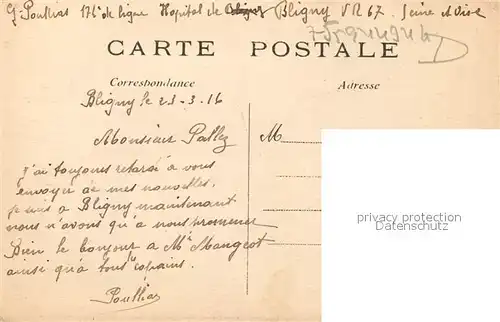 G. Poullias 176e de ligne Hopital de Bligny VR 67. Seine et Oise
CARTE POSTALE
Correspondance
Adresse
Bligny le 21-3-16
Monsieur Pallez
M
J'ai toujours retardé à vous
envoyer de mes nouvelles.
je suis à Bligny maintenant
nous n'avons qu'à nous promener
Bien le bonjour à Mr Mangeot
ainsi qu'à tous les copains.
Poullias
privacy protection
Datenschutz